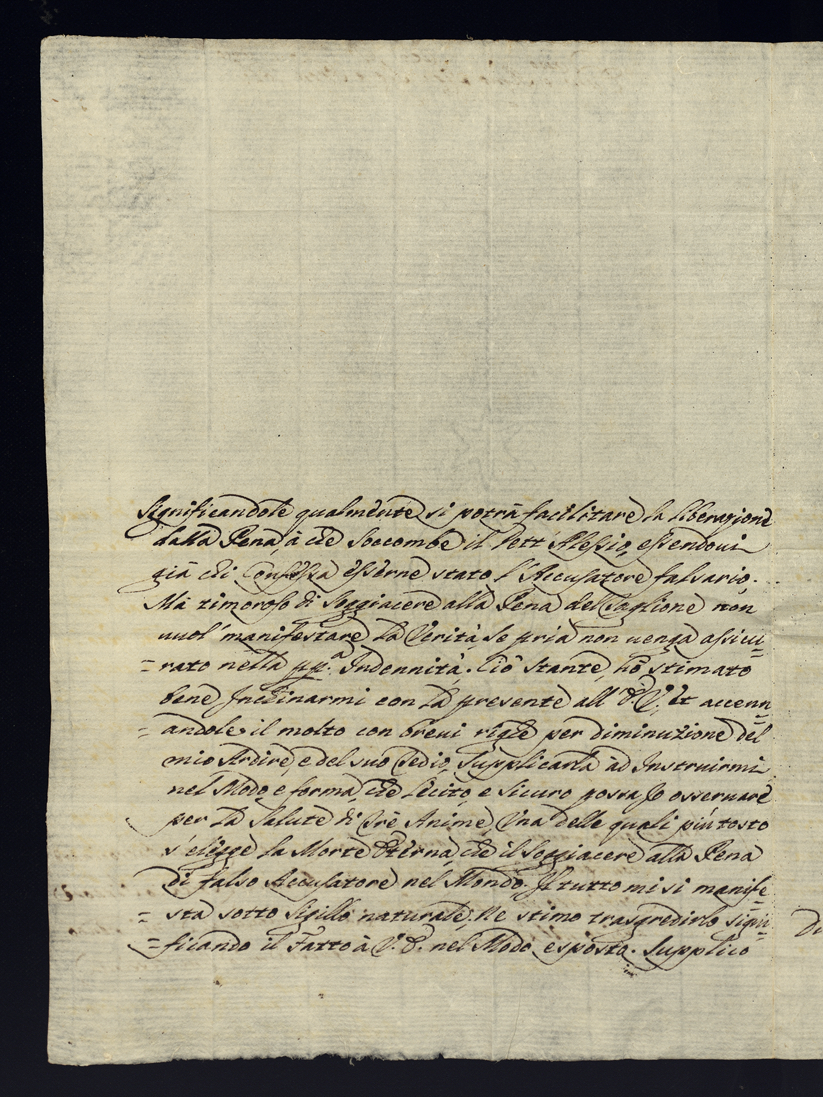 Significandole qualmente si potrà facilitare la liberazione
dalla Pena, à che soccombe il Pett Alessio, essendoui
già chi Confessa esserne stato l'Accusatore falsario.
Mà timoroso di soggiacere alla Pena del Taglione non
uuol' manifestare La Verità, se pria non uenga assicu=
=rato nella Indennità. Ciò stante, hò stimato
bene Inchinarmi con La presente all' et accenn=
=andole il molto con breui righe per diminuzione del
mio Ardire, e del suo Tedio, Supplicarla ad Instruirmi
nel Modo e forma, che Lecito, e Sicuro possa Io osseruare
per La Salute di Trè Anime, Vna delle quali piu tosto
s'elegge La Morte Eterna, che il Soggiacere alla Pena
di falso Accusatore nel Mondo. Il tutto mi si manife=
=sta sotto Sigillo naturale, Ne stimo trasgredirlo signi=
=ficando il Fatto à nel Modo esposto. Supplico